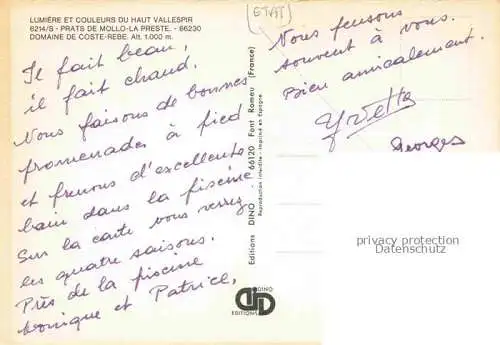 LUMIÈRE ET COULEURS DU HAUT VALLESPIR
6214/S - PRATS DE MOLLO-LA PRESTE. - 66230
DOMAINE DE COSTE-REBE. Alt. 1.000 m.
(ETAT)
Il fait beau,
il fait chaud.
Nous faisons de bonnes
promenades à pied
et prenons d'excellents
bain dans la piscine
Sur la carte vous verrez
les quatre saisons.
Près de la piscine
Monique et Patrice,
Nous pensons
souvent à vous.
Bien amicalement.
Yvette
Georges
Editions DINO - 66120 Font Romeu (France)
Reproduction interdite - Imprimé en Espagne
DINO
EDITIONS
privacy protection
Datenschutz